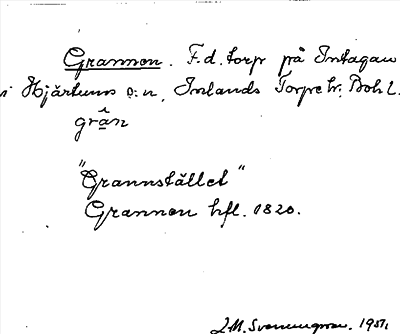 Grannen. F.d. torp på Intagan
i Hjärtums s:n, Inlands Torpe hr. Boh l.
grân
"Grannstället"
Grannen hfl. 1820.
1951.